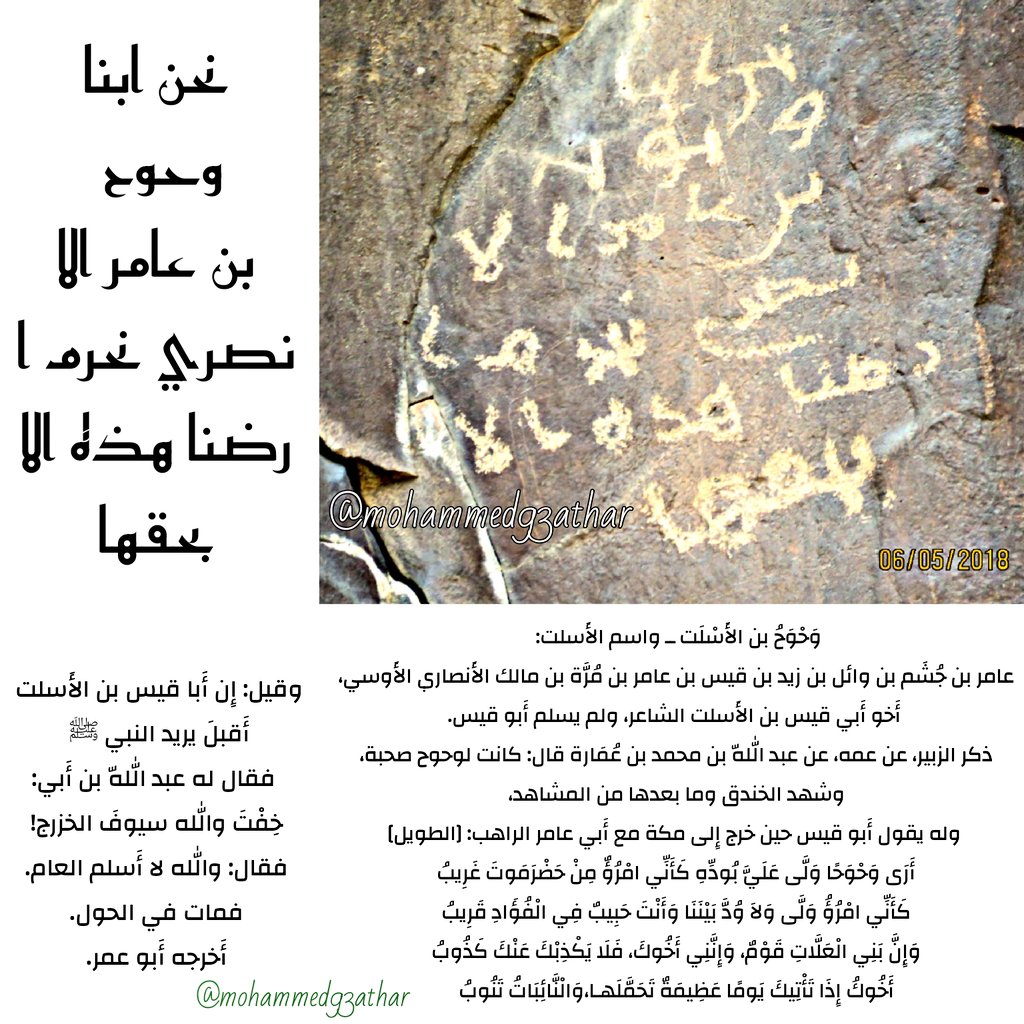 نحن ابنا
وحوح
بن عامر الا
نصري نحرم ا
رضنا هذه الا
بحقها
@mohammedgzathar
06/05/2018
وَحْوَحُ بن الأَسْلَت ــ واسم الأسلت:
عامر بن جُشَم بن وائل بن زيد بن قيس بن عامر بن مُرَّة بن مالك الأنصاري الأوسي،
أَخو أَبي قيس بن الأسلت الشاعر، ولم يسلم أَبو قيس.
ذكر الزبير، عن عمه، عن عبد اللّٰه بن محمد بن عُمَارة قال: كانت لوحوح صحبة،
وشهد الخندق وما بعدها من المشاهد،
وله يقول أَبو قيس حين خرج إِلى مكة مع أَبي عامر الراهب: [الطويل]
أَرَى وَحْوَحًا وَلَّى عَلَيَّ بُودِّهِ كَأَنِّي امْرُؤٌ مِنْ حَضْرَمَوتَ غَرِيبُ
كَأَنِّي امْرُؤٌ وَلَّى وَلاَ وُدَّ بَيْنَنَا وَأَنْتَ حَبِيبٌ فِي الْفُؤَادِ قَرِيبُ
وَإِنَّ بَنِي الْعَلَّاتِ قَوْمٌ، وَإِنَّنِي أَخُوكَ، فَلَا يَكْذِبْكَ عَنْكَ كَذُوبُ
أَخُوكُ إِذَا تَأْتِيكَ يَومًا عَظِيمَةٌ تَحَمَّلَهـا،وَالْنَّائِبَاتُ تَنُوبُ
وقيل: إِن أَبا قيس بن الأَسلت
أَقبلَ يريد النبي ﷺ
فقال له عبد اللّٰه بن أَبي:
خِفْتَ واللّٰه سيوفَ الخزرج!
فقال: واللّٰه لا أَسلم العام.
فمات في الحول.
أَخرجه أَبو عمر.
@mohammedgzathar